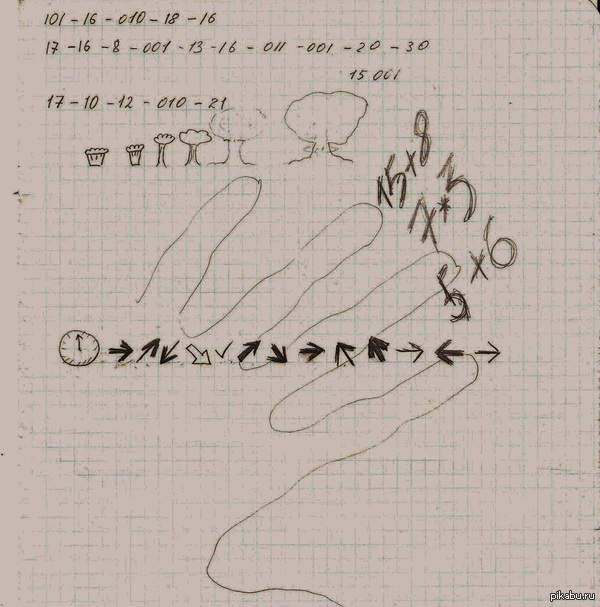 101-16-010-18-16
17-16-8-001-13-16-011-001-20-30
15 001
17-10-12-010-21
15x8
7*3
5x6
pikabu.ru